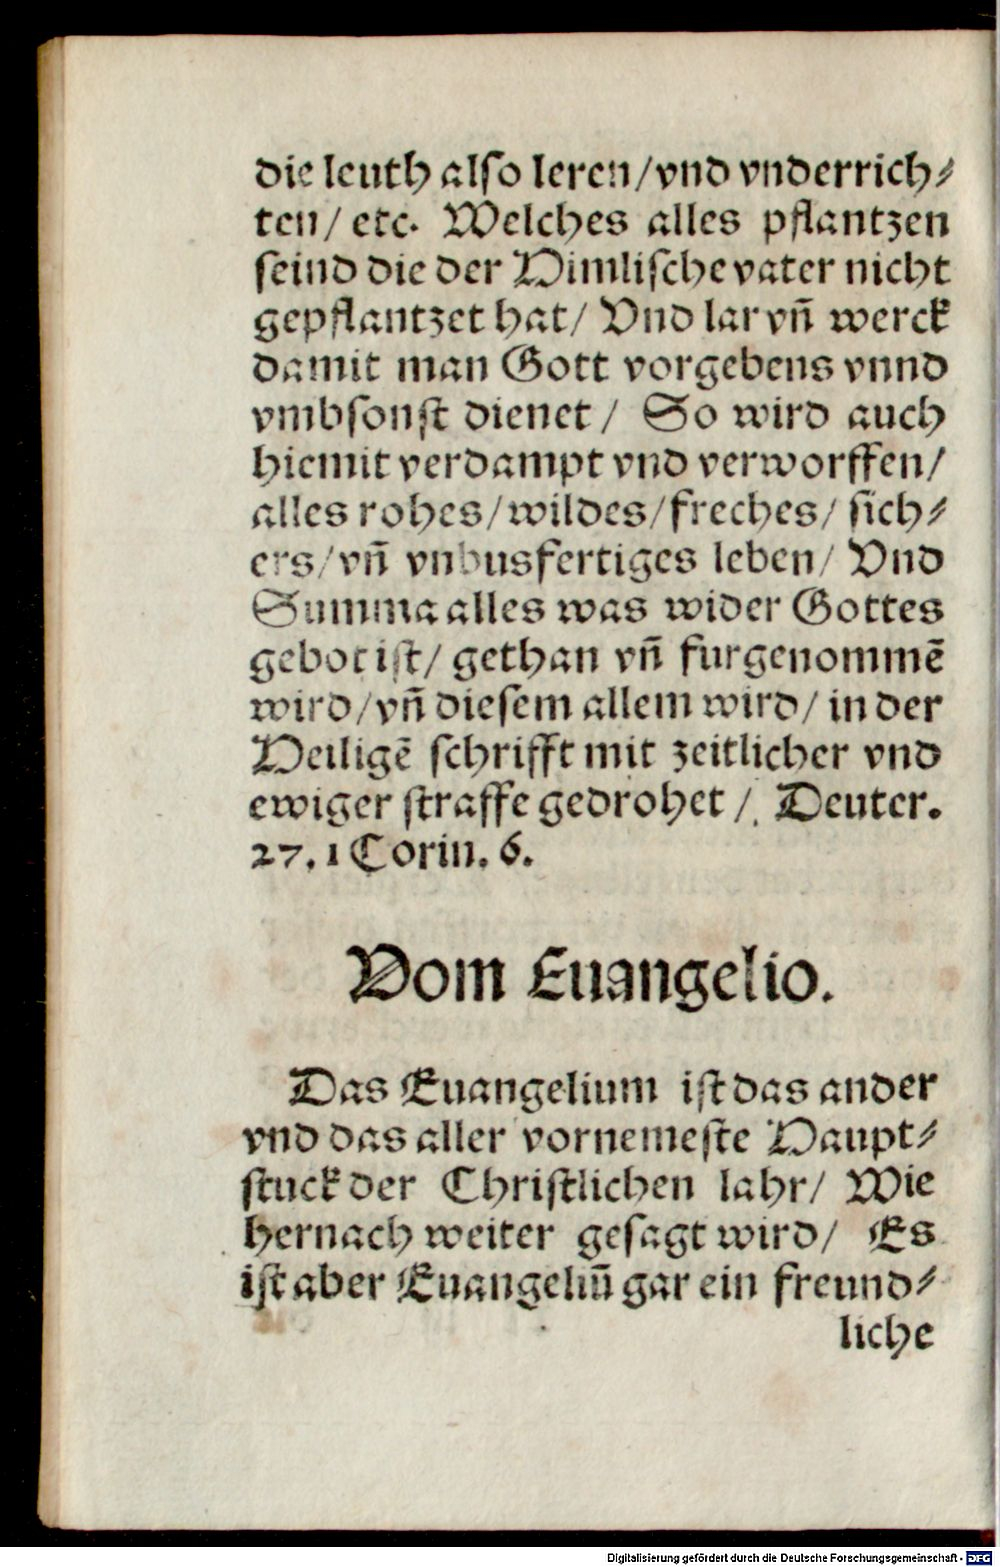 die leuth also leren/vnd vnderrich⸗
ten/ etc. Welches alles pflantzen
seind die der Himlische vater nicht
gepflantzet hat/ Vnd lar vñ werck
damit man Gott vorgebens vnnd
vmbsonst dienet/ So wird auch
hiemit verdampt vnd verworffen/
alles rohes/wildes/freches/ sich⸗
ers/vñ vnbusfertiges leben/ Vnd
Summa alles was wider Gottes
gebot ist/ gethan vñ furgenommē
wird/vñ diesem allem wird/ in der
Heiligē schrifft mit zeitlicher vnd
ewiger straffe gedrohet/. Deuter.
27. 1 Corin. 6.
Vom Euangelio.
Das Euangelium ist das ander
vnd das aller vornemeste Haupt⸗
stuck der Christlichen lahr/ Wie
hernach weiter gesagt wird/ Es
ist aber Euangeliū gar ein freund⸗
liche
Digitalisierung gefördert durch die Deutsche Forschungsgemeinschaft - DFG